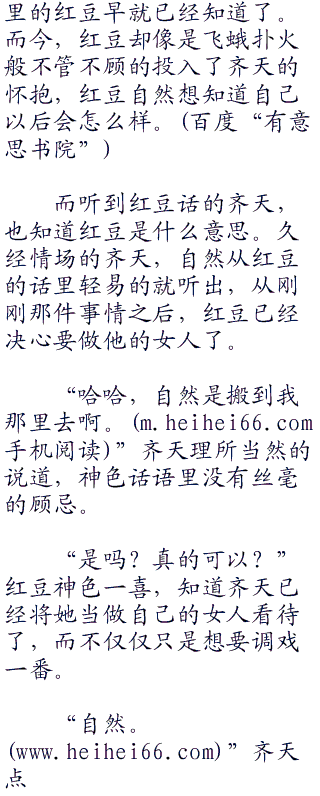 里的红豆早就已经知道了。
而今，红豆却像是飞蛾扑火
般不管不顾的投入了齐天的
怀抱，红豆自然想知道自己
以后会怎么样。(百度“有意
思书院”)
而听到红豆话的齐天，
也知道红豆是什么意思。久
经情场的齐天，自然从红豆
的话里轻易的就听出，从刚
刚那件事情之后，红豆已经
决心要做他的女人了。
“哈哈，自然是搬到我
那里去啊。(m.heihei66.com
手机阅读)”齐天理所当然的
说道，神色话语里没有丝毫
的顾忌。
“是吗？真的可以？”
红豆神色一喜，知道齐天已
经将她当做自己的女人看待
了，而不仅仅只是想要调戏
一番。
“自然。
(www.heihei66.com)”齐天
点